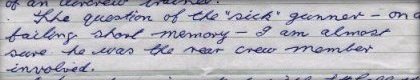 of an aircrew trained.
The question of the "sick" gunner - on
failing short memory - I am almost
sure he was the rear crew member
involved.